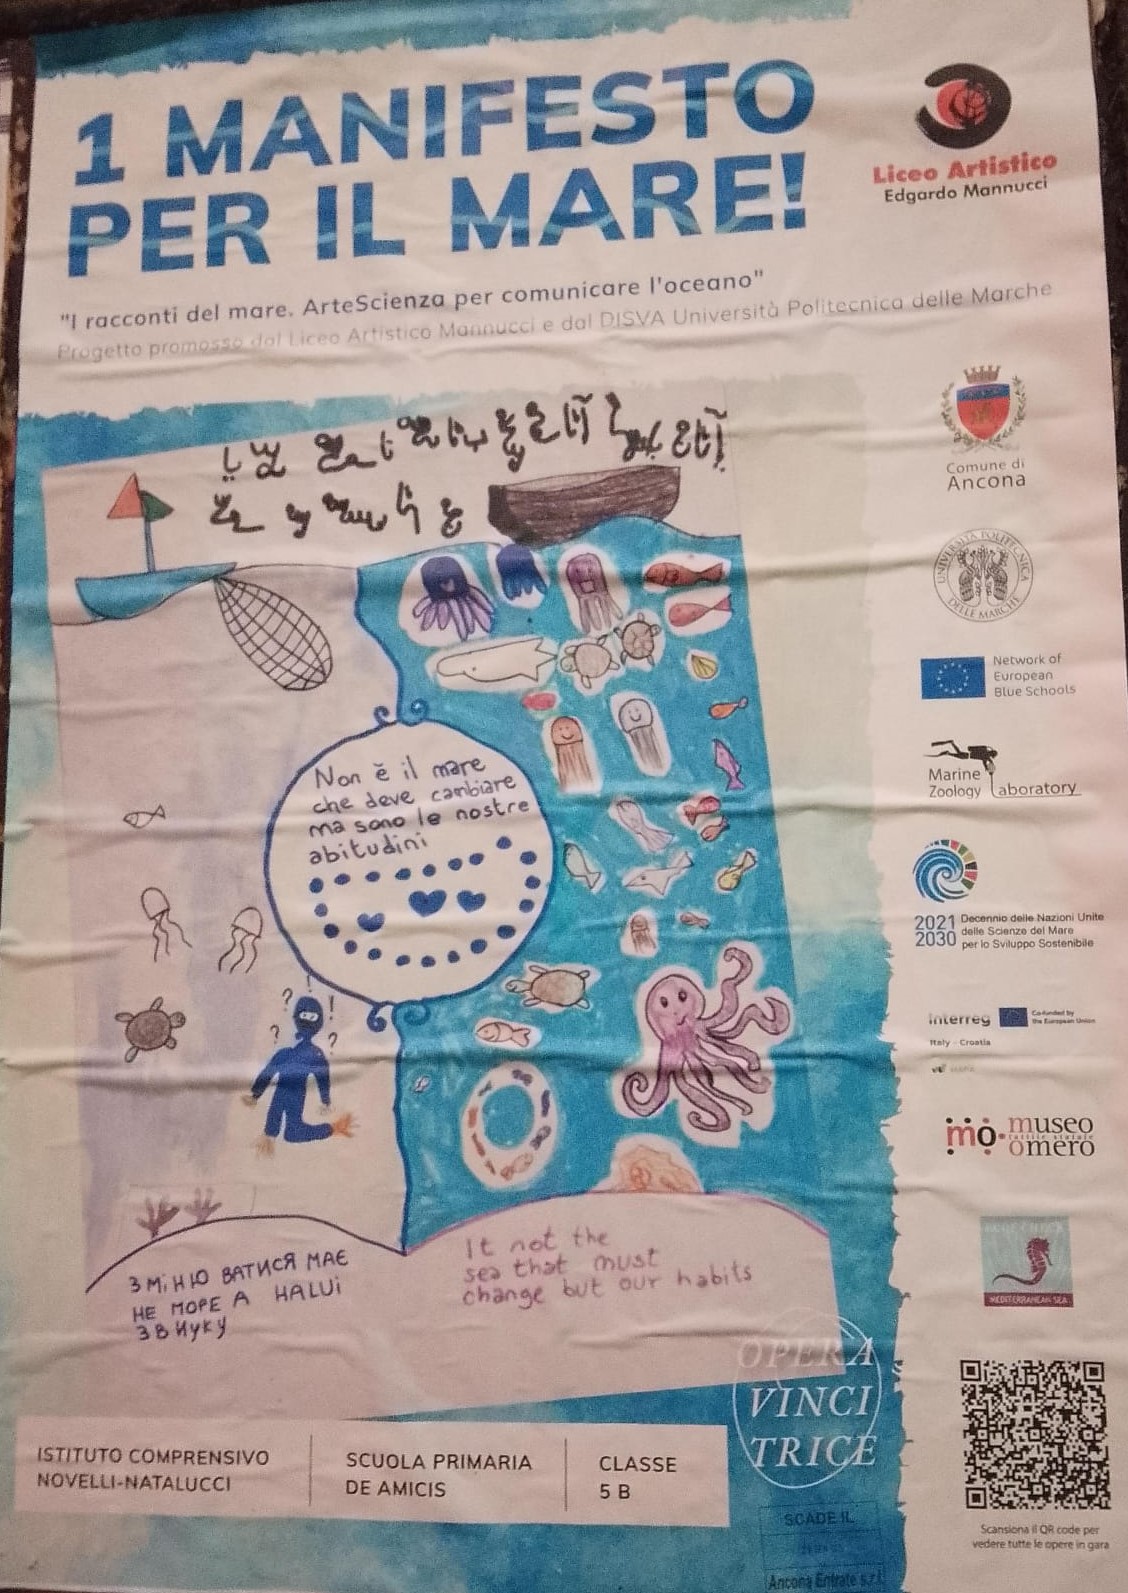 1 MANIFESTO
PER IL MARE!
Liceo Artistico
Edgardo Mannucci
"I racconti del mare. ArteScienza per comunicare l'oceano"
Progetto promosso dal Liceo Artistico Mannucci e dal DISVA Università Politecnica delle Marche
Comune di
Ancona
UNIVERSITÀ POLITECNICA
DELLE MARCHE
Network of
European
Blue Schools
Marine
Zoology Laboratory
Non è il mare
che deve cambiare
ma sono le nostre
abitudini
2021
2030
Decennio delle Nazioni Unite
delle Scienze del Mare
per lo Sviluppo Sostenibile
Interreg
Co-funded by
the European Union
Italy - Croatia
? ! ! ? ?
museo
omero
MEDITERRANEAN SEA
ЗМіНЮВАТИСЯ МАЄ
НЕ МОРЕ А НАШі
ЗВИЧКУ
It not the
sea that must
change but our habits
OPERA
VINCI
TRICE
ISTITUTO COMPRENSIVO
NOVELLI-NATALUCCI
SCUOLA PRIMARIA
DE AMICIS
CLASSE
5 B
SCADE IL
Ancona Entrate s.r.l.
Scansiona il QR code per
vedere tutte le opere in gara